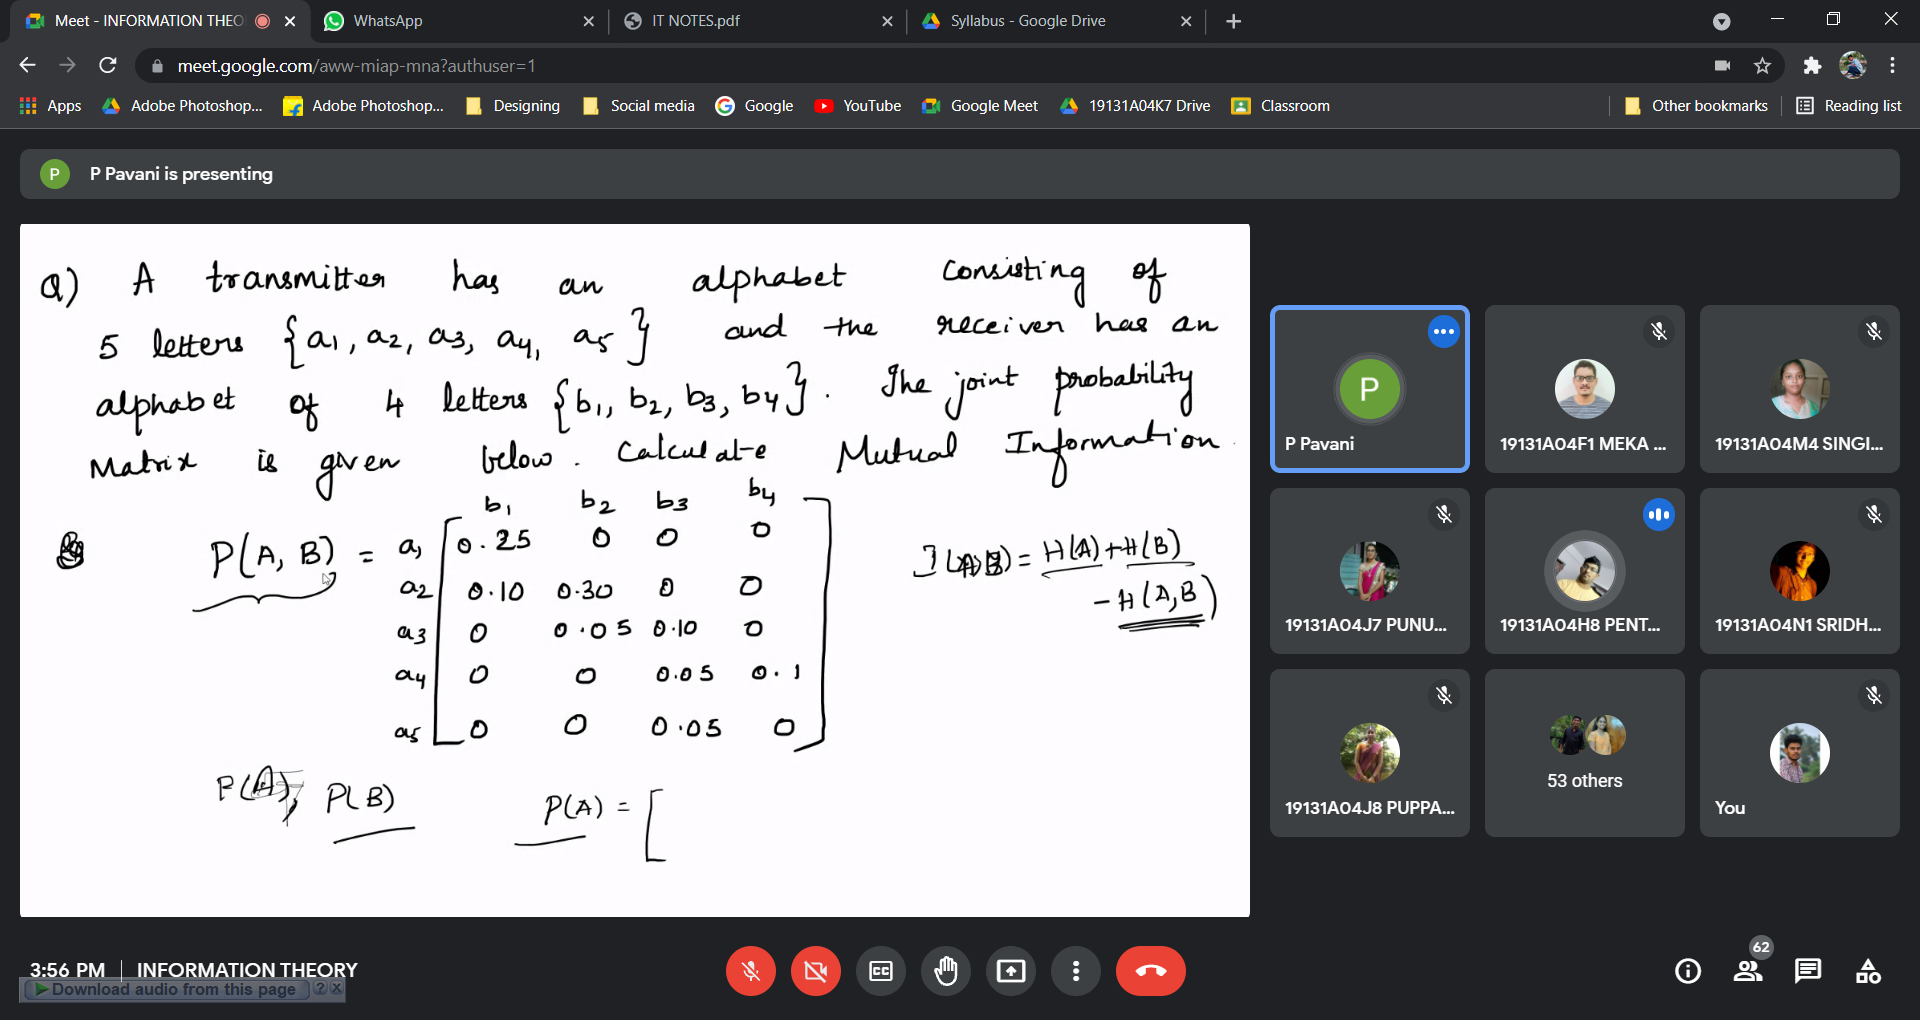 Meet - INFORMATION THEO
WhatsApp
IT NOTES.pdf
Syllabus - Google Drive
meet.google.com/aww-miap-mna?authuser=1
Apps
Adobe Photoshop...
Adobe Photoshop...
Designing
Social media
Google
YouTube
Google Meet
19131A04K7 Drive
Classroom
Other bookmarks
Reading list
P
P Pavani is presenting
Q) A transmitter has an alphabet consisting of
5 letters {a1, a2, a3, a4, a5} and the receiver has an
alphabet of 4 letters {b1, b2, b3, b4}. The joint probability
Matrix is given below. Calculate Mutual Information.
b1 b2 b3 b4
P(A, B) = a1 0.25 0 0 0
a2 0.10 0.30 0 0
a3 0 0.05 0.10 0
a4 0 0 0.05 0.1
a5 0 0 0.05 0
I(A,B) = H(A) + H(B)
- H(A,B)
P(A), P(B)
P(A) = [
P
P Pavani
19131A04F1 MEKA ...
19131A04M4 SINGI...
19131A04J7 PUNU...
19131A04H8 PENT...
19131A04N1 SRIDH...
19131A04J8 PUPPA...
53 others
You
3:56 PM | INFORMATION THEORY
Download audio from this page ? X
CC
62